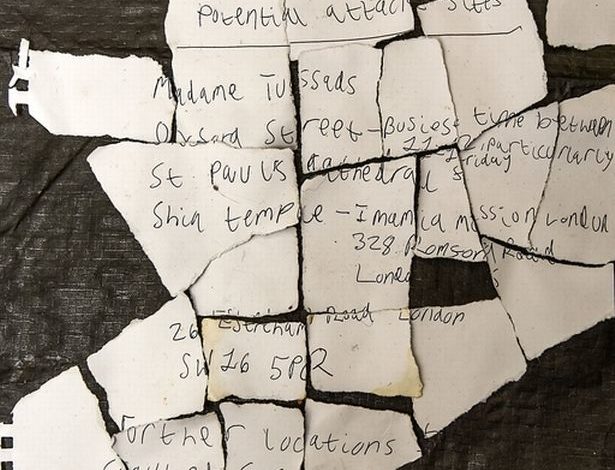 Potential attack sites
Madame Tussads
Oxford Street - Busiest time between
particularly
Friday
St Pauls Cathedral &
Shia temple - Imamia mission London
328 Romsory Road
London
26 Estreham Road London
SW16
Further locations